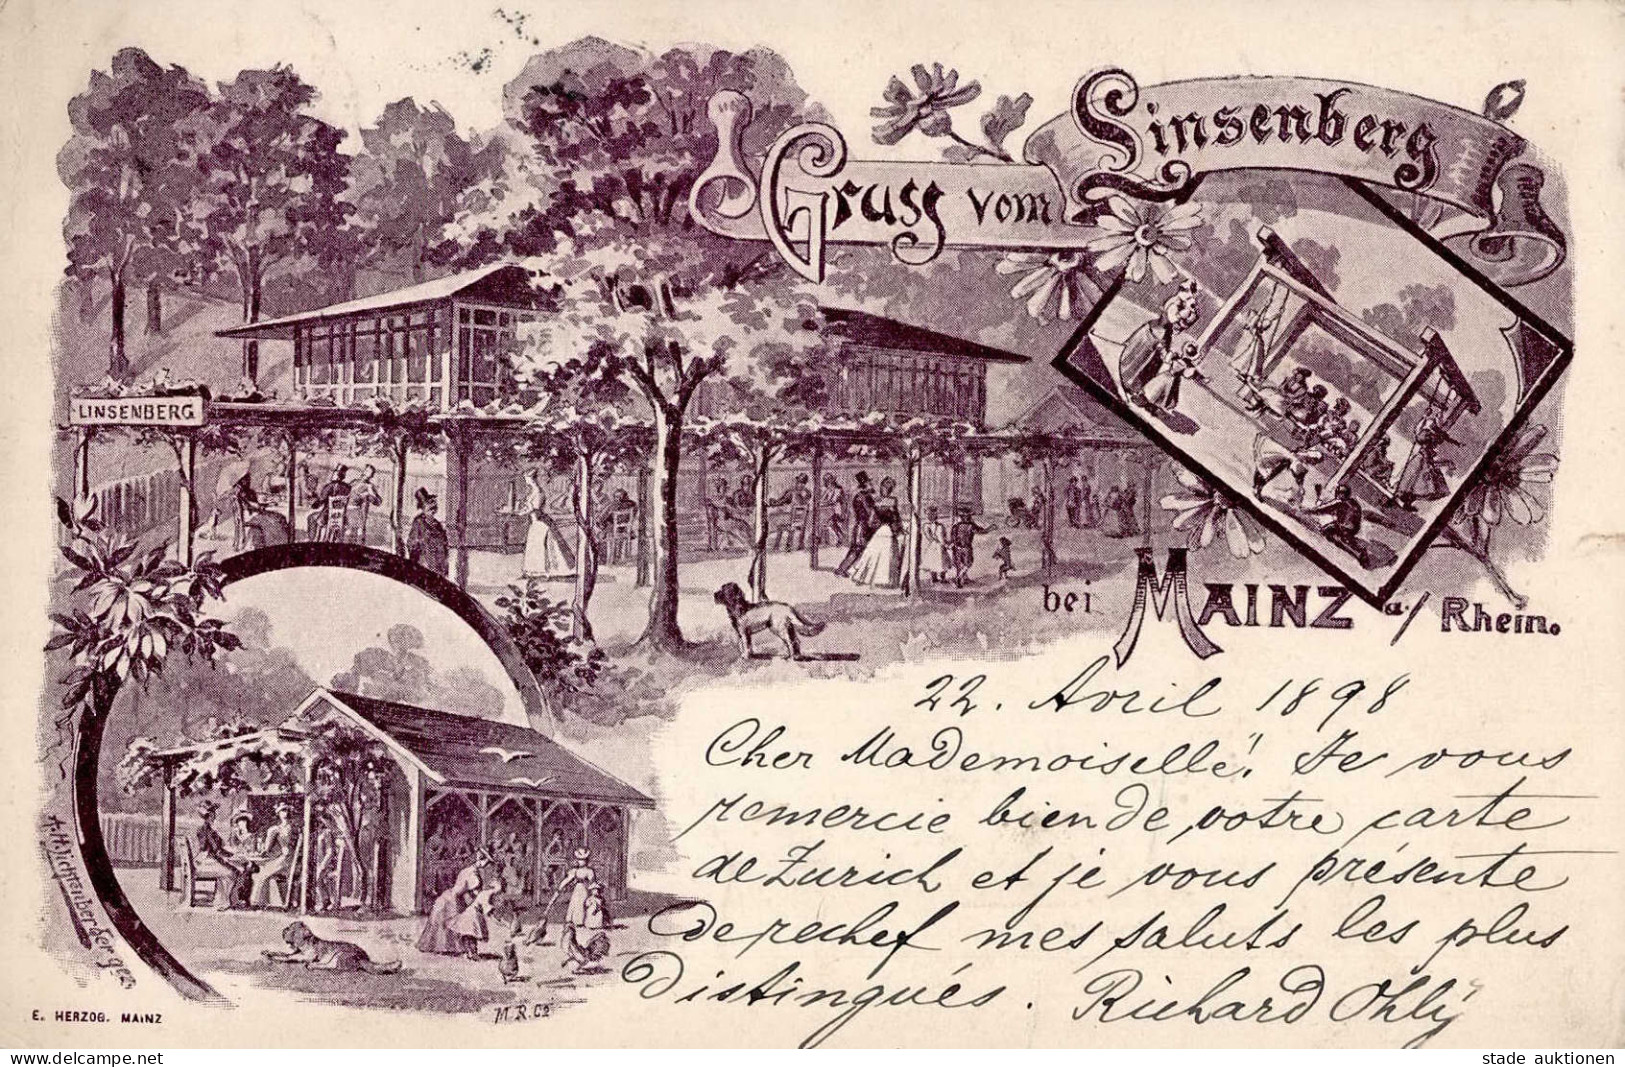 Gruss vom Linsenberg
LINSENBERG
bei MAINZ a/Rhein.
22. Avril 1898
Cher Mademoiselle! Je vous
remercie bien de votre carte
de Zurich et je vous présente
derechef mes saluts les plus
distingués. Richard Ohly
E. HERZOG. MAINZ
M.R.C2
stade auktionen